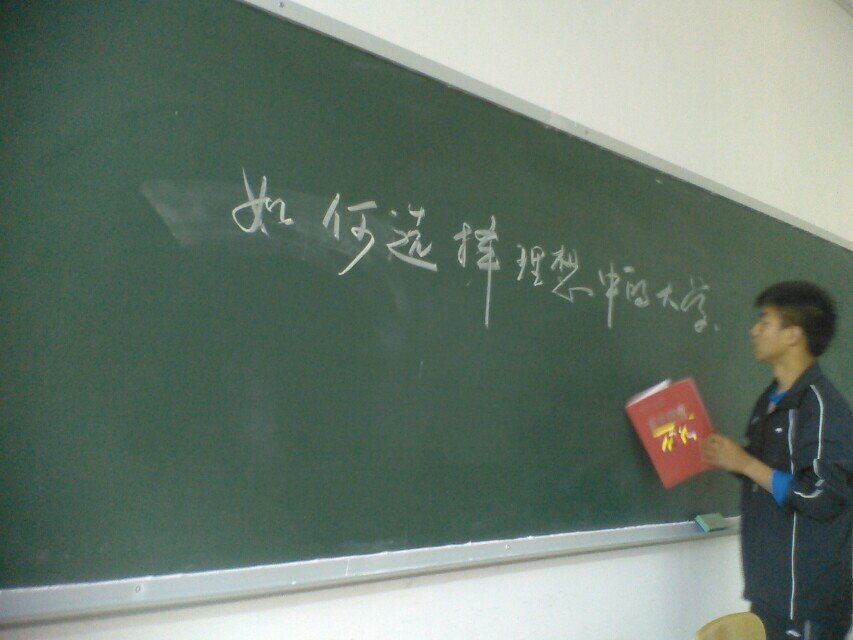 如何选择理想中的大学.